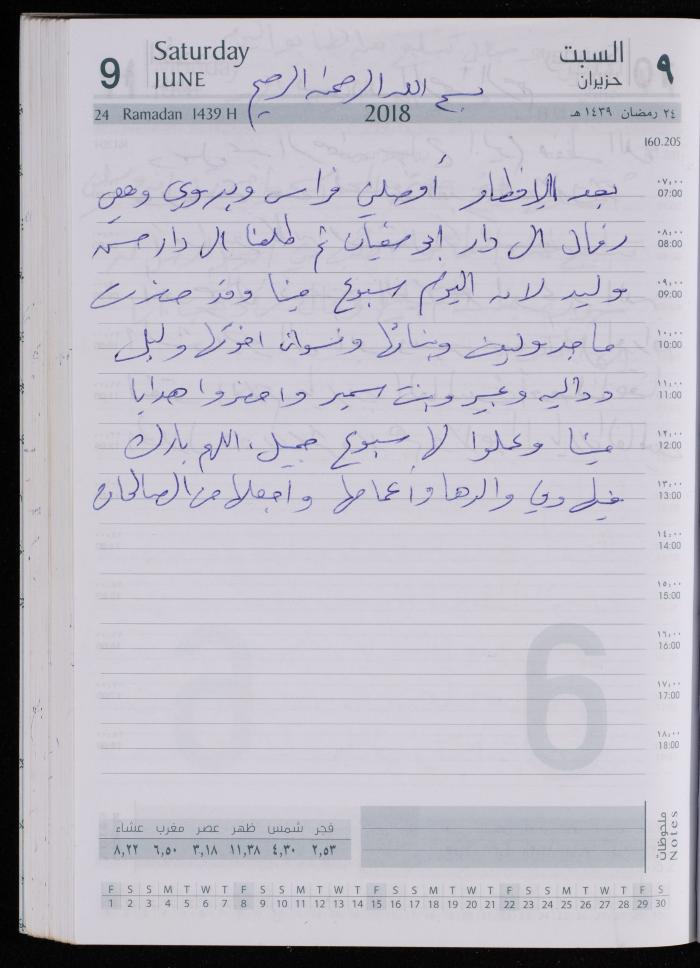 9 Saturday JUNE السبت حزيران ٩
بسم الله الرحمن الرحيم
24 Ramadan 1439 H 2018 ٢٤ رمضان ١٤٣٩ هـ
160.205
بعد الإفطار أوصلني فراس وبدوي وهي ٠٧،٠٠ 07:00
الى دار ابو سفيان ثم طلعنا ال دار حسن ٠٨،٠٠ 08:00
وليد لانه اليوم سبوع مينا وقد حضرت ٠٩،٠٠ 09:00
ماجد وبناتها ونسوان اخوتها وليل ١٠،٠٠ 10:00
وداليه وعبير وبنت سمير واحضروا هدايا ١١،٠٠ 11:00
مينا وعملوا لها سبوع جميل، اللهم بارك ١٢،٠٠ 12:00
فيها وفي والدها وأعمامها واجعلها من الصالحات ١٣،٠٠ 13:00
١٤،٠٠ 14:00
١٥،٠٠ 15:00
١٦،٠٠ 16:00
١٧،٠٠ 17:00
١٨،٠٠ 18:00
6
فجر شمس ظهر عصر مغرب عشاء
٢,٥٣ ٤,٣٠ ١١,٣٨ ٣,١٨ ٦,٥٠ ٨,٢٢
ملحوظات Notes
F S S M T W T F S S M T W T F S S M T W T F S S M T W T F S
1 2 3 4 5 6 7 8 9 10 11 12 13 14 15 16 17 18 19 20 21 22 23 24 25 26 27 28 29 30